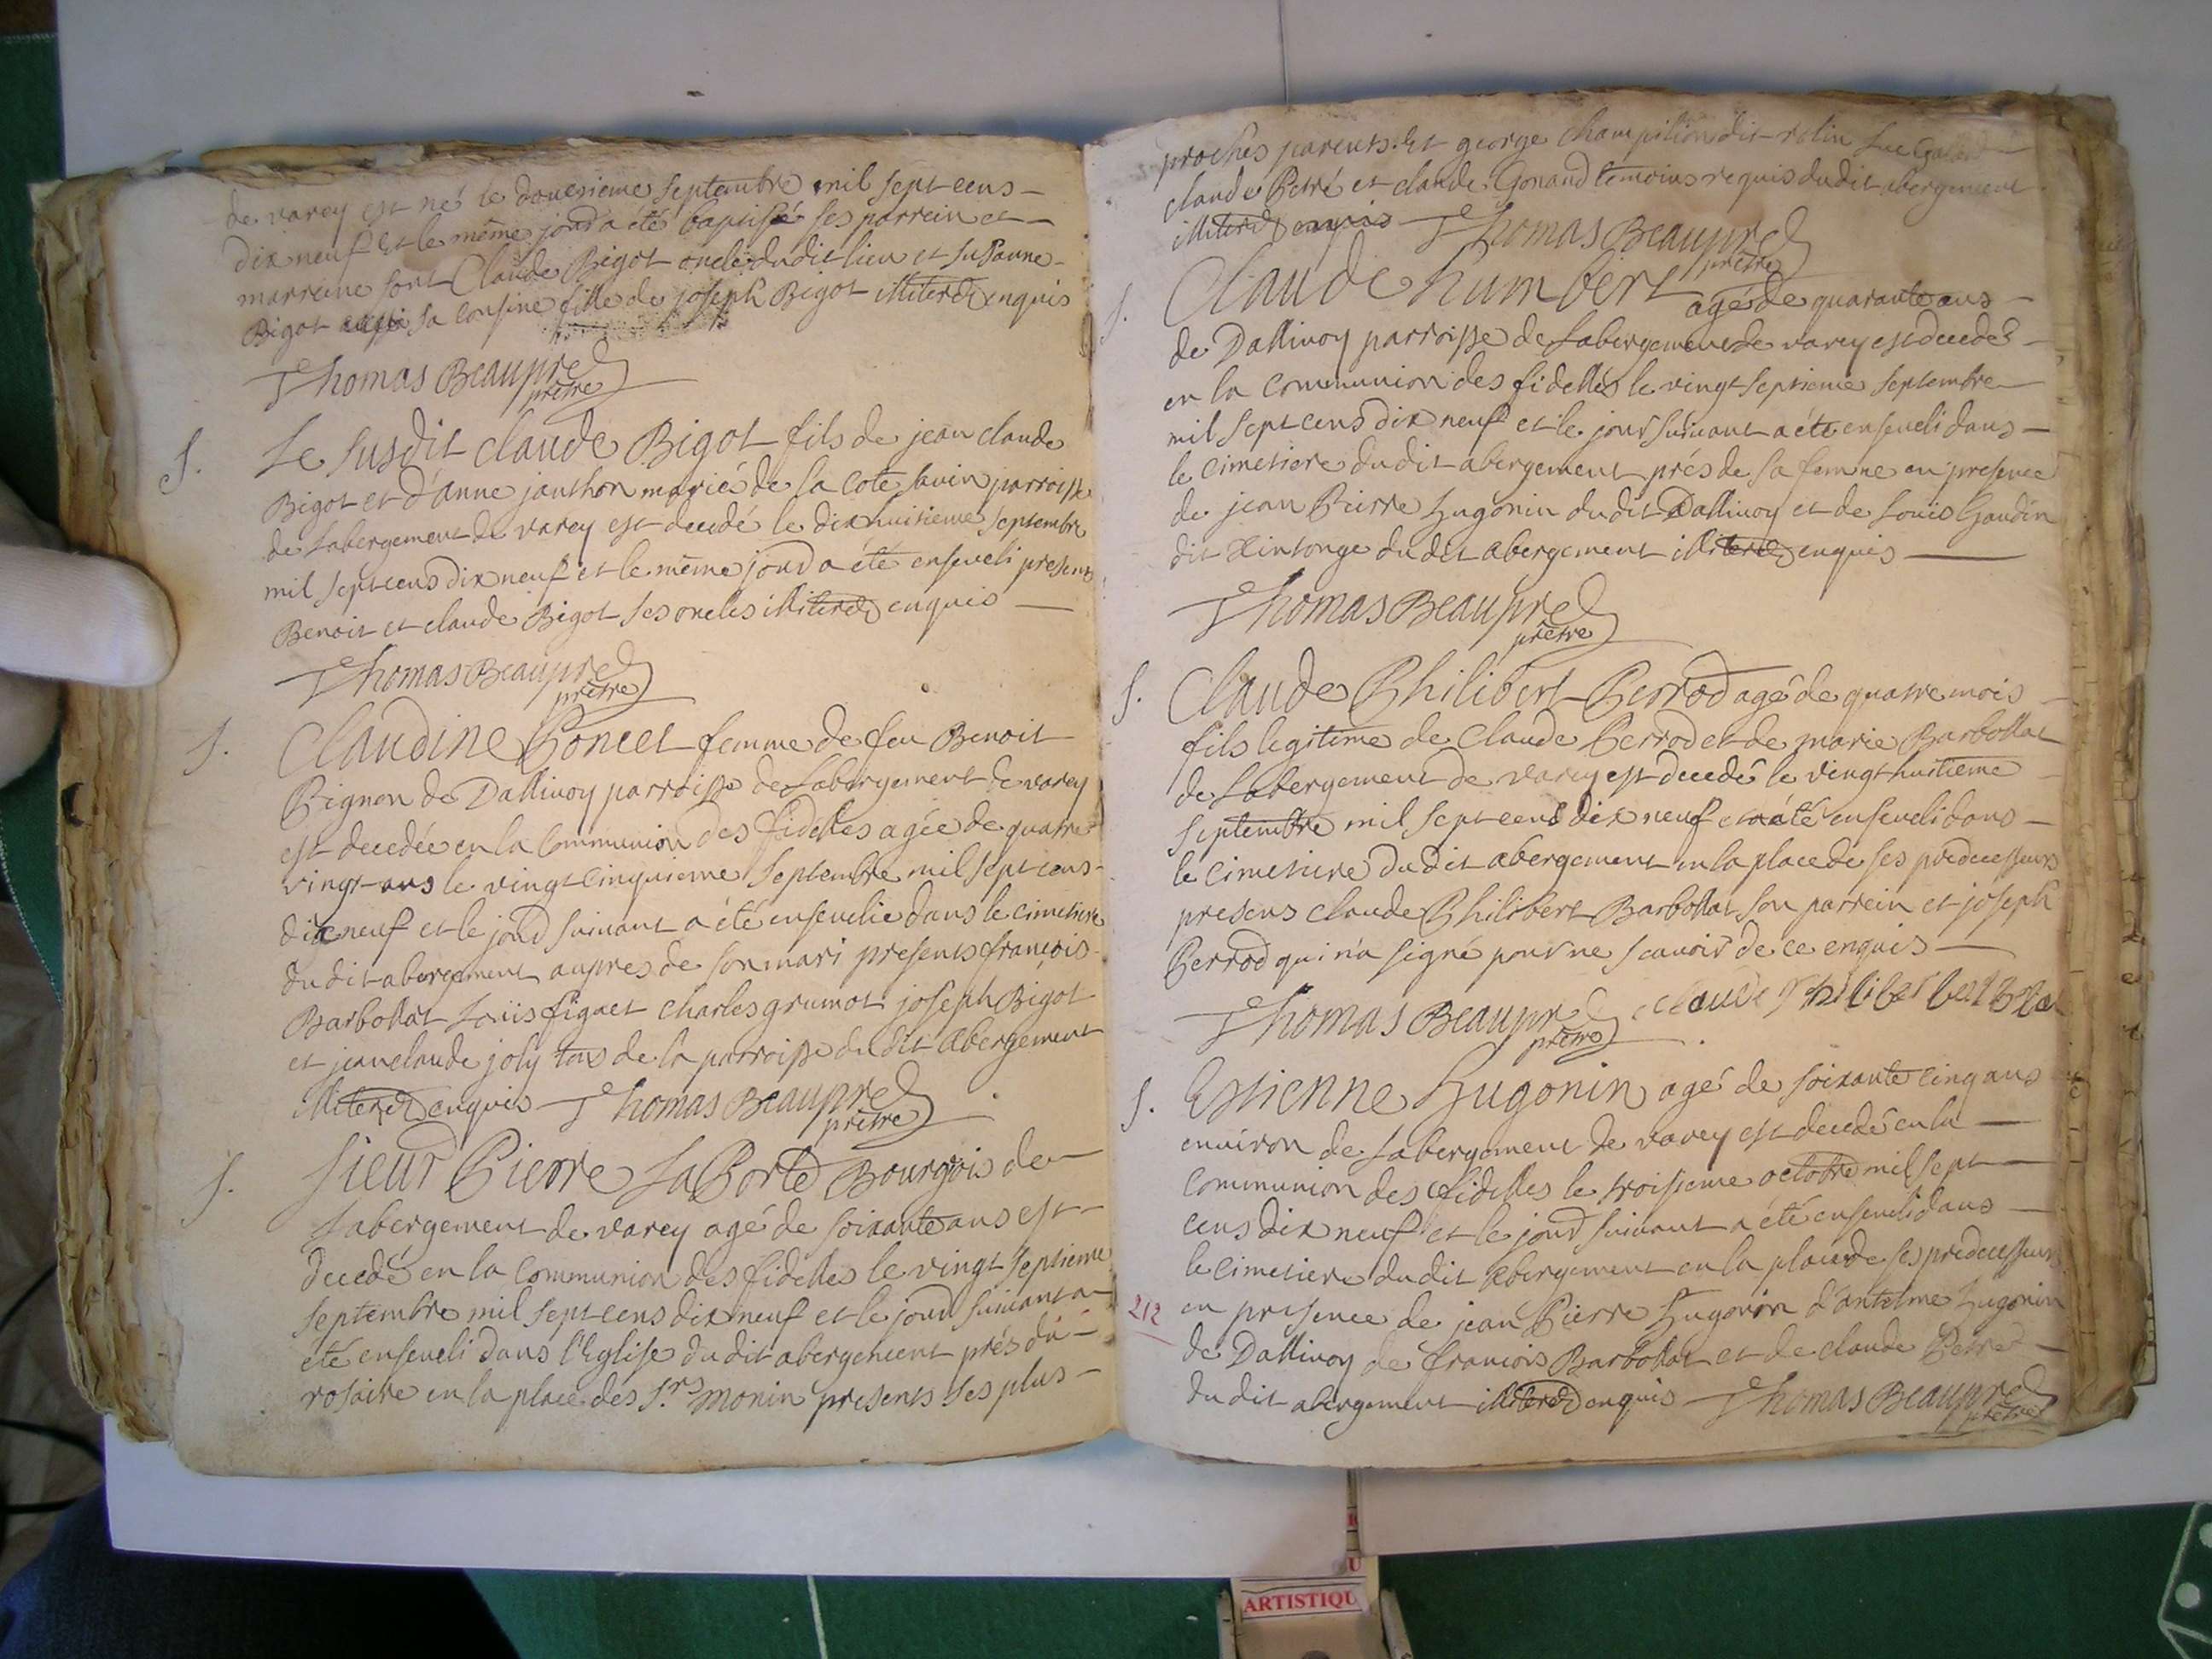 de varey est né le douzieme septembre mil sept cens
dix neuf et le même jour a été baptisé ses parrein et
marreine sont Claude Bigot oncle dudit lieu et Susanne
Bigot aussi sa cousine fille de joseph Bigot illiterés enquis
Thomas Beaupre
prêtre
S. Le susdit claude Bigot fils de jean claude
Bigot et d'anne janthon mariés de la cote savin parroisse
de Labergement de varey est decedé le dix huitieme septembre
mil sept cens dix neuf et le même jour a été enseveli presens
Benoit et claude Bigot ses oncles illiterés enquis
Thomas Beaupre
prêtre
S. Claudine Poncet femme de feu Benoit
Pignon de Dallivoy parroisse de Labergement de varey
est decedée en la Communion des fidelles agée de quatre
vingt ans le vingt cinquieme septembre mil sept cens
dix neuf et le jour suivant a été ensevelie dans le cimetiere
du dit abergement aupres de son mari presents françois
Barbollat Loüis figuet charles grumot joseph Bigot
et jean claude joly tous de la parroisse du dit abergement
illiterés enquis Thomas Beaupre
prêtre
S. Sieur Pierre La Porte Bourgeois de
Labergement de varey agé de soixante ans est
decedé en la Communion des fidelles le vingt septieme
septembre mil sept cens dix neuf et le jour suivant a
eté enseveli dans l'Eglise du dit abergement prés du
rosaire en la place des Srs monin presents ses plus
proches parents. Et george Champition dit rolin
claude Petré et claude Gonand temoins requis du dit abergement
illiterés enquis Thomas Beaupre
prêtre
S. Claude humbert agé de quarante ans
de Dallivoy parroisse de Labergement de varey est decedé
en la Communion des fidelles le vingt septieme septembre
mil sept cens dix neuf et le jour suivant a été enseveli dans
le cimetiere du dit abergement prés de sa femme en presence
de jean Pierre hugonin du dit Dallivoy et de Loüis Gaudin
dit Xintonge du dit abergement illiterés enquis
Thomas Beaupre
prêtre
S. Claude Philibert Perrod agé de quatre mois
fils legitime de Claude Perrod et de marie Barbollat
de Labergement de varey est decedé le vingt huitieme
septembre mil sept cens dix neuf et a été enseveli dans
le cimetiere du dit abergement en la place de ses predecesseurs
presens claude Philibert Barbollat son parrein et joseph
Perrod qui n'a signé pour ne scavoir de ce enquis
Thomas Beaupre claude philiber
prêtre
S. Estienne hugonin agé de soixante cinq ans
environ de Labergement de varey est decedé en la
Communion des fidelles le troisieme octobre mil sept
cens dix neuf et le jour suivant a été enseveli dans
le cimetiere du dit abergement en la place de ses predecesseurs
212 en presence de jean Pierre hugonin d'antelme hugonin
de Dallivoy de francois Barbollat et de claude Petré
du dit abergement illiterés enquis Thomas Beaupre
prêtre
ARTISTIQU